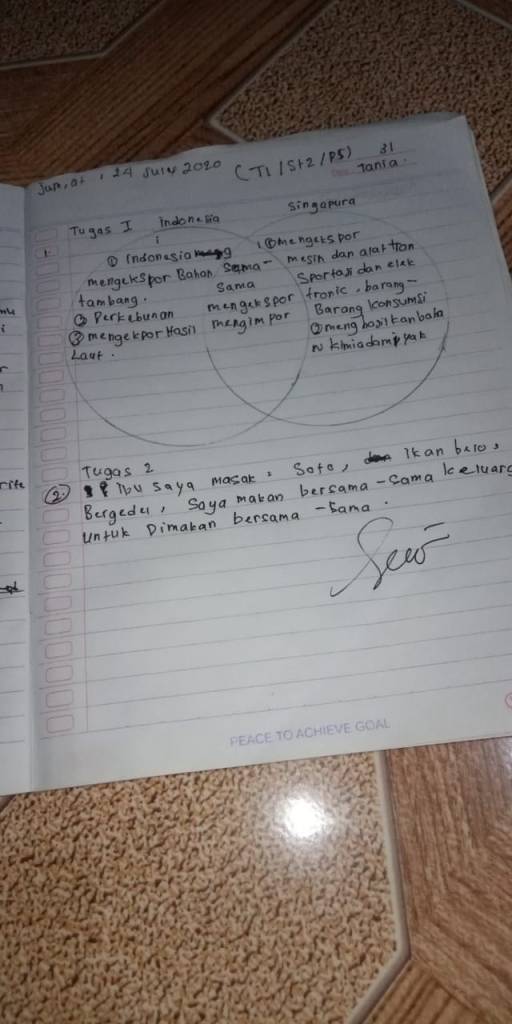 Jum,at , 24 July 2020 (T1/St2/P5) 31
Tania.
Tugas I Indonesia Singapura
1. i
① Indonesia
mengekspor Bahan
tambang.
② Perkebunan
③ mengekpor Hasil
Laut.
Sama-
Sama
mengekspor
mengimpor
① mengekspor
mesin dan alattran
Sportasi dan elek
tronic, barang-
Barang konsumsi
② menghasilkanbaha
n kimia dan
Tugas 2
2. ibu saya masak : Soto, ikan
Bergedel, Saya makan bersama-sama keluarg
untuk Dimakan bersama-sama.
PEACE TO ACHIEVE GOAL